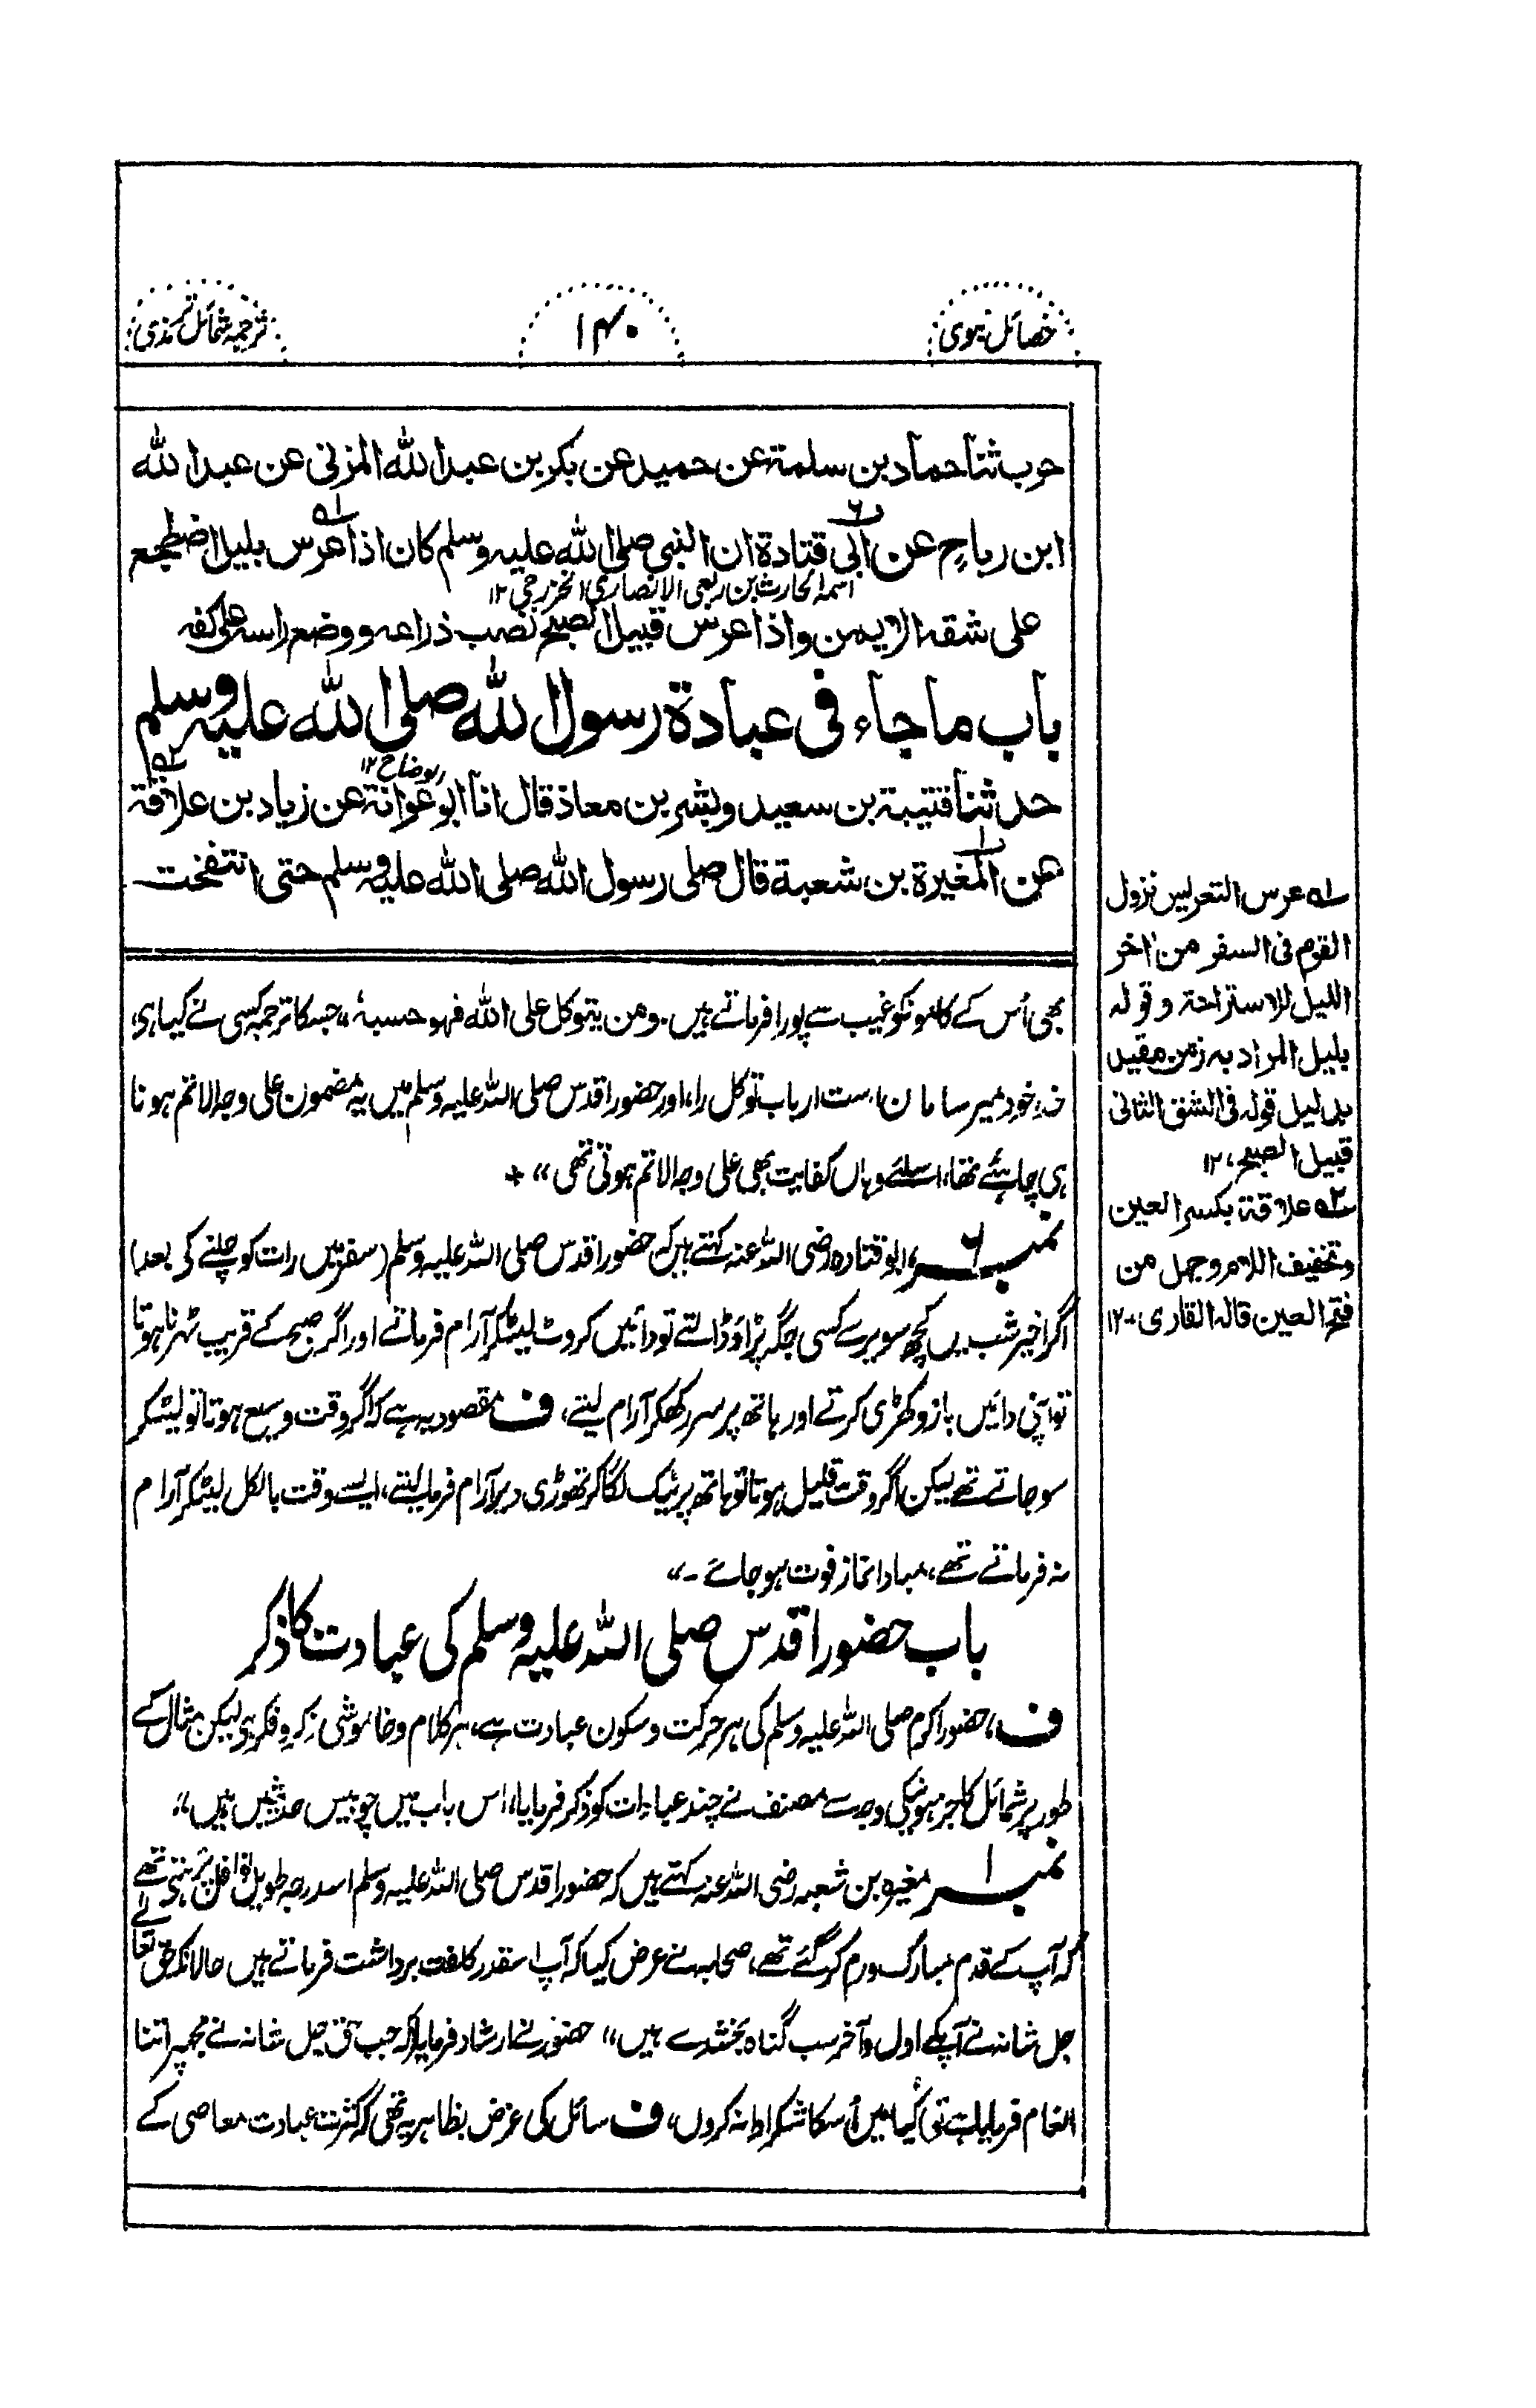 خصائل نبوی
۱۴۰
ترجمہ شمائل ترمذی
حرب ثنا حماد بن سلمة عن حميد عن بكر بن عبد الله المزنى عن عبد الله
ابن رباح عن ابى قتادة ان النبى صلى الله عليه وسلم كان اذا عرس بليل اضطجع
اسمه الحارث بن ربعی الانصاری الخزرجی ۱۲
على شقه الايمن واذا عرس قبيل الصبح نصب ذراعه ووضع راسه على كفه
باب ما جاء فى عبادة رسول الله صلى الله عليه وسلم
حدثنا قتيبة بن سعيد وبشر بن معاذ قال انا ابو عوانة عن زياد بن علاقة
عن المغيرة بن شعبة قال صلى رسول الله صلى الله عليه وسلم حتى انتفخت
بھی اُس کے کامونکو غیب سے پورا فرماتے ہیں۔ ومن یتوکل علی اللہ فھو حسبہٗ، جسکا ترجمہ کسی نے کیا ہی،
خود میر سامان است ارباب توکل را، اور حضور اقدس صلی اللہ علیہ وسلم میں یہ مضمون علی وجہ الاتم ہونا
ہی چاہئے تھا، اسلئے وہاں کفایت بھی علی وجہ الاتم ہوتی تھی"
نمبر ۶ ابو قتادہ رضی اللہ عنہ کہتے ہیں کہ حضور اقدس صلی اللہ علیہ وسلم (سفر میں رات کو چلنے کی بعد)
اگر اخیر شب میں کچھ سویرے کسی جگہ پڑاؤ ڈالتے تو دائیں کروٹ لیٹکر آرام فرماتے اور اگر صبح کے قریب ٹہرنا ہوتا
تو اپنی دائیں بازو کھڑی کرتے اور ہاتھ پر سر رکھکر آرام لیتے، ف مقصود یہ ہے کہ اگر وقت وسیع ہوتا تو لیٹکر
سو جاتے تھے لیکن اگر وقت قلیل ہوتا تو ہاتھ پر ٹیک لگا کر تھوڑی دیر آرام فرما لیتے، ایسے وقت بالکل لیٹکر آرام
نہ فرماتے تھے، مبادا نماز فوت ہو جائے۔"
باب حضور اقدس صلی اللہ علیہ وسلم کی عبادت کا ذکر
ف، حضور اکرم صلی اللہ علیہ وسلم کی ہر حرکت و سکون عبادت ہے، ہر کلام و خاموشی ذکر و فکر ہی لیکن مثال کے
طور پر شمائل کا جز ہونیکی وجہ سے مصنف نے چند عبادات کو ذکر فرمایا، اس باب میں چوبیس حدیثیں ہیں"،
نمبر ۱ مغیرہ بن شعبہ رضی اللہ عنہ کہتے ہیں کہ حضور اقدس صلی اللہ علیہ وسلم اسدرجہ طویل نوافل پڑہتے تھے
کہ آپ کے قدم مبارک ورم کر گئے تھے، صحابہ نے عرض کیا کہ آپ اسقدر کلفت برداشت فرماتے ہیں حالانکہ حق تعالے
جل شانہ نے آپکے اول و آخر سب گناہ بخشدے ہیں" حضور نے ارشاد فرمایا کہ جب حق جل شانہ نے مجھپر اتنا
انعام فرمایا ہے تو کیا میں اُسکا شکر ادا نہ کروں، ف سائل کی غرض بظاہر یہ تھی کہ کثرت عبادت معاصی کے
لہ عرس التعريس نزول
القوم فى السفر من اخر
الليل للاستراحة وقوله
بليل المراد به زمن مقيد
بدليل قوله فى الشق الثانى
قبيل الصبح، ۱۲
علاقة بكسر العين
وتخفيف اللام وجهل من
فتح العين قاله القارى، ۱۲